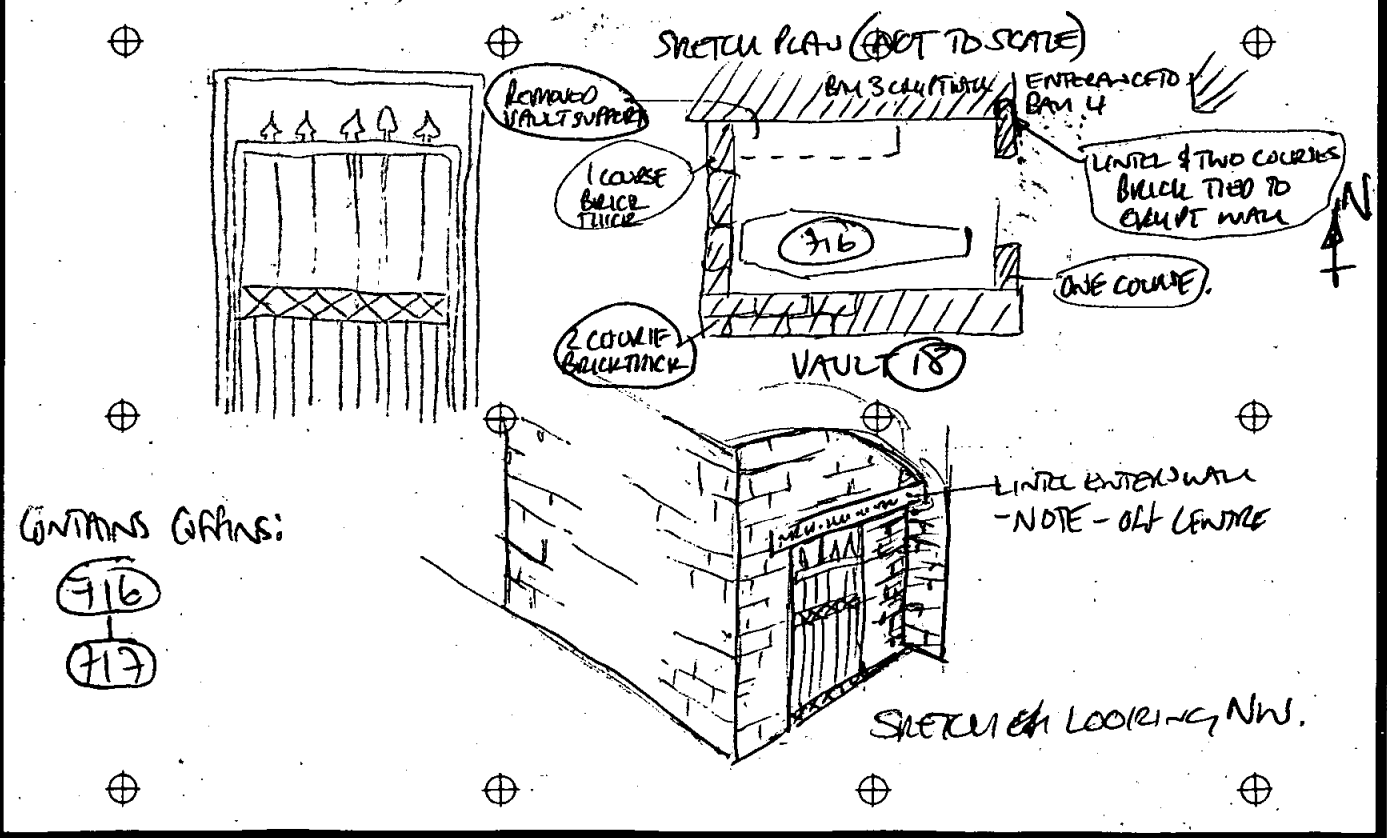 SKETCH PLAN (NOT TO SCALE)
REMOVED
VAULT SUPPORT
BAY 3 CRYPT WALL
ENTERANCE TO
BAY 4
1 COURSE
BRICK
THICK
LINTEL & TWO COURSES
BRICK TIED TO
CRYPT WALL
N
716
ONE COURSE.
2 COURSE
BRICK THICK
VAULT 18
LINTEL ENTERS WALL
- NOTE - OFF CENTRE
CONTAINS COFFINS:
716
717
SKETCH LOOKING NW.